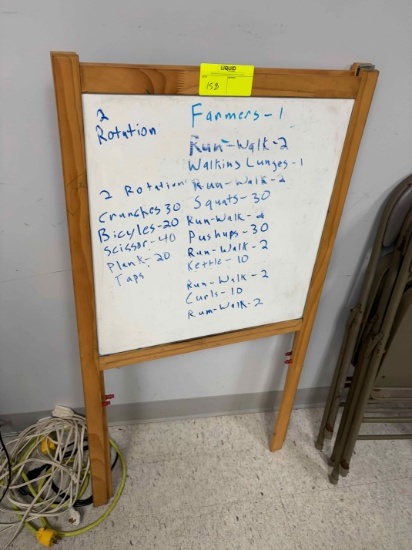 LIQUID
158
2
Rotation
2 Rotation
Crunches 30
Bicycles-20
Scissor-40
Plank-20
Taps
Farmers-1
Run-Walk-2
Walking Lunges-1
Run-Walk-2
Squats-30
Run-Walk-2
Pushups-30
Run-Walk-2
Kettle-10
Run-Walk-2
Curls-10
Run-Walk-2